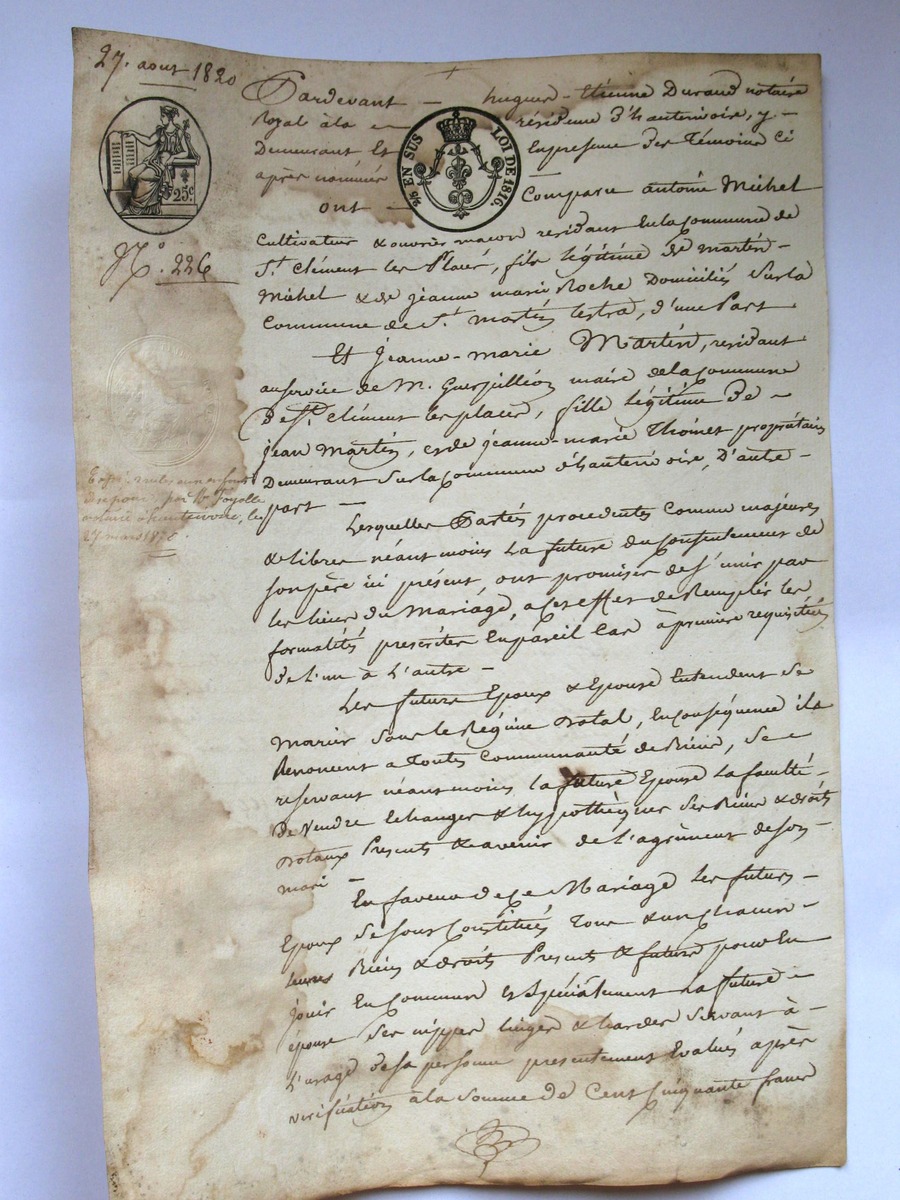 27. aout 1820
Pardevant - hugues-Etienne Durand notaire
Royal à la résidence d'hauterivoire, y -
Demeurant Et En presence Des Témoins Ci
après nommés
ont - Comparu antoine Michel
Cultivateur & ouvrier maçon residant En la Commune de
St. Clément les Places, fils légitime de martin
Michel & de jeanne marie Roche Domiciliés Sur la
Commune de St. martin lestra, d'une Part
Et Jeanne-marie Martin, residant
au service de M. maire de la Commune
De St. Clément les places, fille légitime De -
jean Martin, et de jeanne-marie Thoinet propriétaires
Demeurant Sur la Commune d'hauterivoire, D'autre
part -
Lesquelles Parties procedentes Comme majeures
& libres néantmoins la future du Consentement de
son père ici présent, ont promises de s'unir par
les liens du Mariage, a Cet effet de Remplir les
formalités prescrites En pareil Cas à première requisition
de l'un à l'autre -
Les futurs Epoux & Epouse Entendent Se
Marier Sous le Régime Dotal, En Conséquence ils
Renoncent a Toutes Communauté de Biens, Se -
reservant néantmoins la future Epouse la faculté -
De Vendre Echanger & hypothèquer Ses Biens & droits
Dotaux Presents & avenir de l'agrèment de son -
mari -
En faveur de Ce Mariage les futurs -
Epoux Se sont Constitués Tous & un chacun -
leurs Biens & droits Presents & futurs pour En
jouir En Commun Et Spécialement la future -
épouse Ses nippes linges & hardes Servant à -
l'usage de sa personne presentement Evalués après
verification à la Somme de Cent Cinquante francs
25c.
5/10 EN SUS
LOI DE 1816.
N° 226
par Me Fayolle
notaire à hauterivoire, le
27 mars